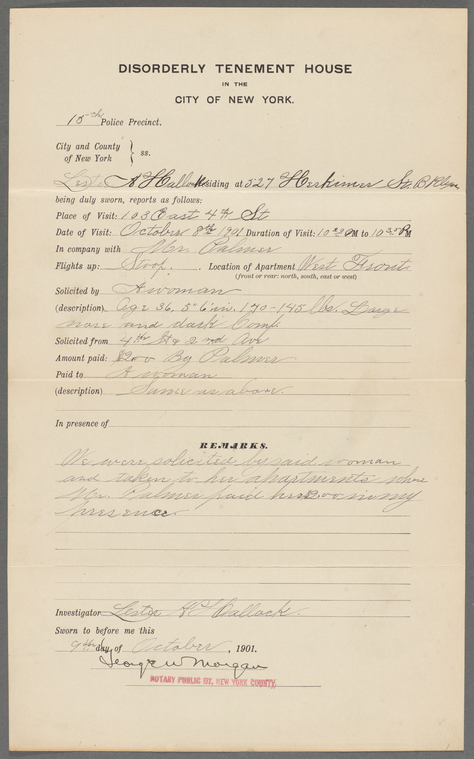 DISORDERLY TENEMENT HOUSE
IN THE
CITY OF NEW YORK.
15th Police Precinct.
City and County
of New York } ss.
residing at 327 Herkimer St. B'klyn
being duly sworn, reports as follows:
Place of Visit: 103 East 4th St
Date of Visit: October 8th 1901 Duration of Visit: PM to PM
In company with Mr. Palmer
Flights up: Stoop. Location of Apartment West Front
(front or rear: north, south, east or west)
Solicited by A woman
(description) Age 36, 5' 6 in. 140-145 lbs. Large
nose and dark Comp.
Solicited from 4th St & 2nd Ave
Amount paid: $2.00 By Palmer
Paid to A woman
(description) Same as above.
In presence of
REMARKS.
We were solicited by said woman
and taken to her apartments where
Mr. Palmer paid her 2.00 in my
presence
Investigator Lester
Sworn to before me this
9th day of October, 1901.
George W Morgan
NOTARY PUBLIC NEW YORK COUNTY.